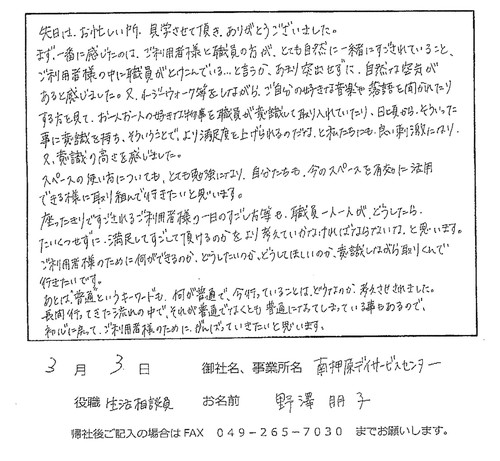 先日は、お忙しい所、見学させて頂き、ありがとうございました。
まず、一番に感じたのは、ご利用者様と職員の方が、とても自然に一緒にすごされていること、
ご利用者様の中に職員がとけこんでいる…と言うか、あまり突出せずに、自然な空気が
あると感じました。又、パーラーウォーク等をしながら、ご自分の好きな音楽や落語を聞かれたり
する方を見て、お一人お一人の好きな物事を職員が意識して取り入れていたり、日頃から、そういった
事に意識を持ち、そういうことで、より満足度を上げられるのだなぁと私たちにも、良い刺激になり、
又、意識の高さを感じました。
スペースの使い方についても、とても勉強になり、自分たちも、今のスペースを有効に活用
できる様に取り組んで行きたいと思います。
座ったきりですごされるご利用者様の一日のすごし方等も、職員一人一人が、どうしたら、
たいくつせずに、満足してすごして頂けるのかをより考えていかなければならないな、と思います。
ご利用者様のために何ができるのか、どうしたいのか、どうしてほしいのか、意識しながら取りくんで
行きたいです。
あとは"普通"というキーワードが、何が普通で、今行っていることは、どうなのか、考えさせられました。
長同行ってきた流れの中で、それが普通でなくとも普通になってしまっている事もあるので、
初心に戻って、ご利用者様のために、がんばっていきたいと思います、
3 月 3 日 御社名、事業所名 南押原デイサービスセンター
役職 生活相談員 お名前 野澤 朋子
帰社後ご記入の場合はFAX 049-265-7030 までお願いします。